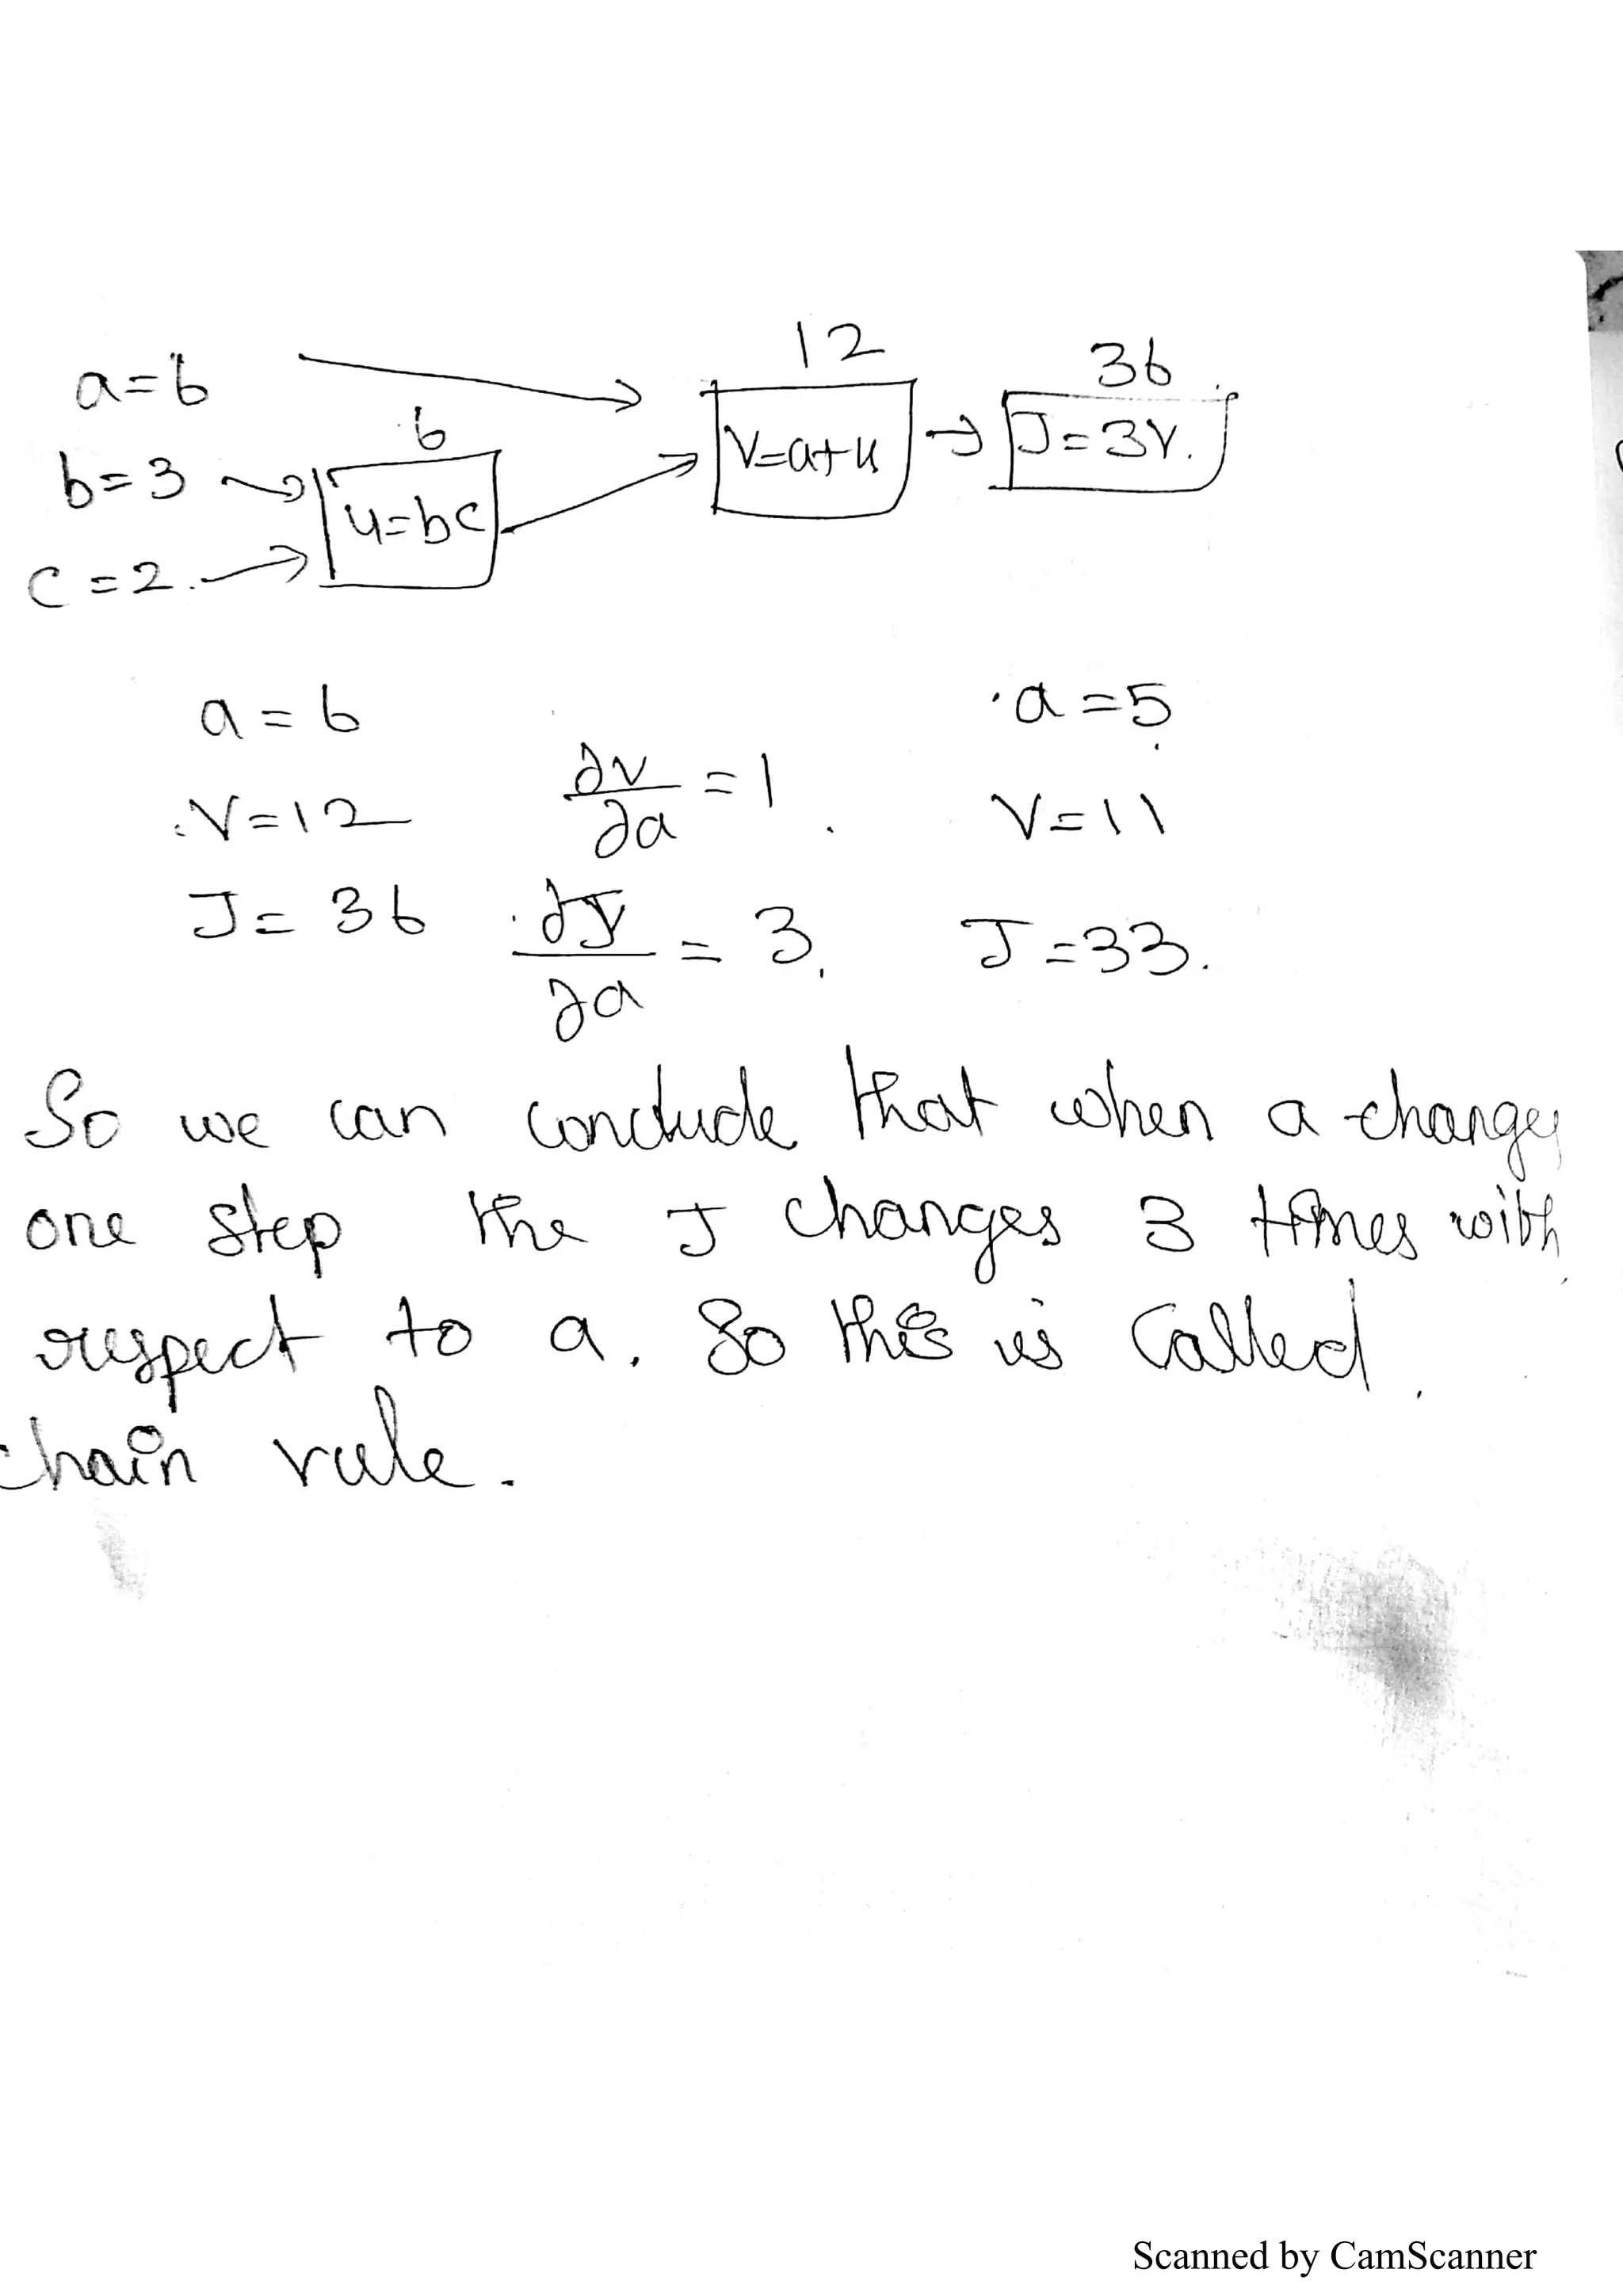 12
36
a=6
6
b=3
V=a+u
J=3V.
u=bc
c=2.
a=6
a=5
∂v/∂a =1
V=12
V=11
J=36
∂J/∂a = 3.
J=33.
So we can conclude that when a changes
one step the J changes 3 times with
respect to a. So this is called
chain rule.
Scanned by CamScanner